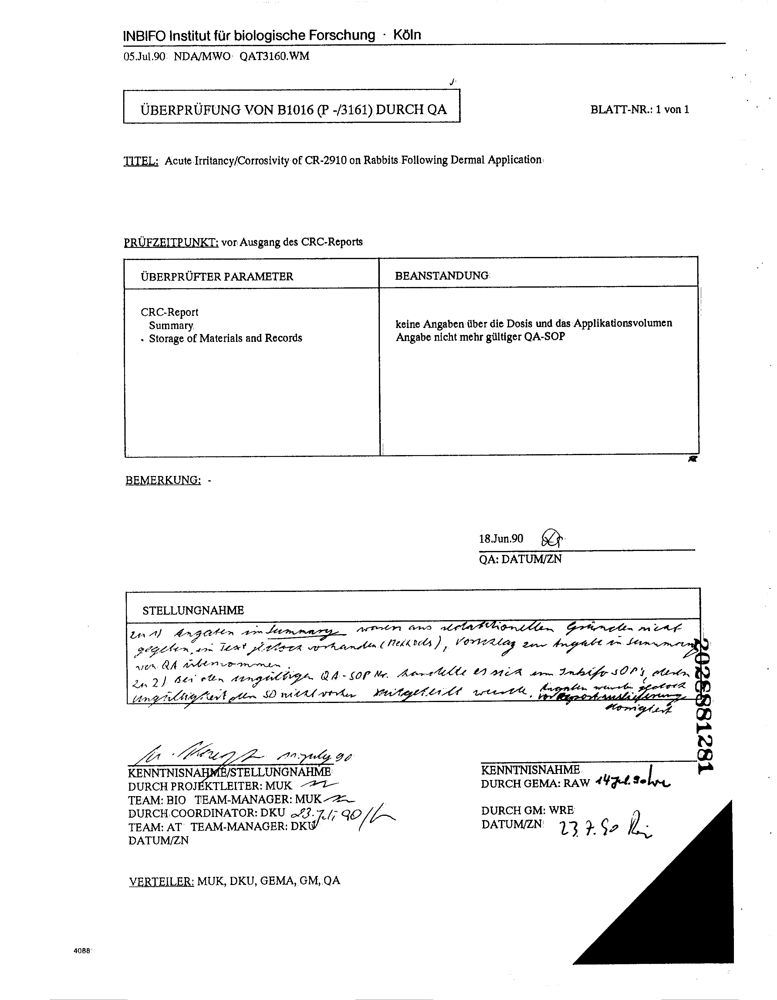 INBIFO Institut für biologische Forschung · Köln
05.Jul.90 NDA/MWO QAT3160.WM
ÜBERPRÜFUNG VON B1016 (P -/3161) DURCH QA
BLATT-NR.: 1 von 1
TITEL: Acute Irritancy/Corrosivity of CR-2910 on Rabbits Following Dermal Application
PRÜFZEITPUNKT: vor Ausgang des CRC-Reports
ÜBERPRÜFTER PARAMETER
BEANSTANDUNG
CRC-Report
Summary
keine Angaben über die Dosis und das Applikationsvolumen
- Storage of Materials and Records
Angabe nicht mehr gültiger QA-SOP
BEMERKUNG: -
18.Jun.90
QA: DATUM/ZN
STELLUNGNAHME
zu 1) Angaben im Summary waren aus redaktionellen Gründen nicht
gegeben, im Text jedoch vorhanden (Methods), Vorschlag zur Angabe in Summary
von QA übernommen.
zu 2) Bei den ungültigen QA-SOP Nr. handelte es sich um Inbifo SOP's, deren
Ungültigkeit dem SD nicht vorher mitgeteilt wurde. Angaben wurden jedoch
vor Reportauslieferung
korrigiert
2028881281
july 90
KENNTNISNAHME/STELLUNGNAHME
DURCH PROJEKTLEITER: MUK
TEAM: BIO TEAM-MANAGER: MUK
DURCH COORDINATOR: DKU 23. Juli 90
TEAM: AT TEAM-MANAGER: DKU
DATUM/ZN
KENNTNISNAHME
DURCH GEMA: RAW 14 Jul. 90
DURCH GM: WRE
DATUM/ZN 23.7.90
VERTEILER: MUK, DKU, GEMA, GM, QA
4088